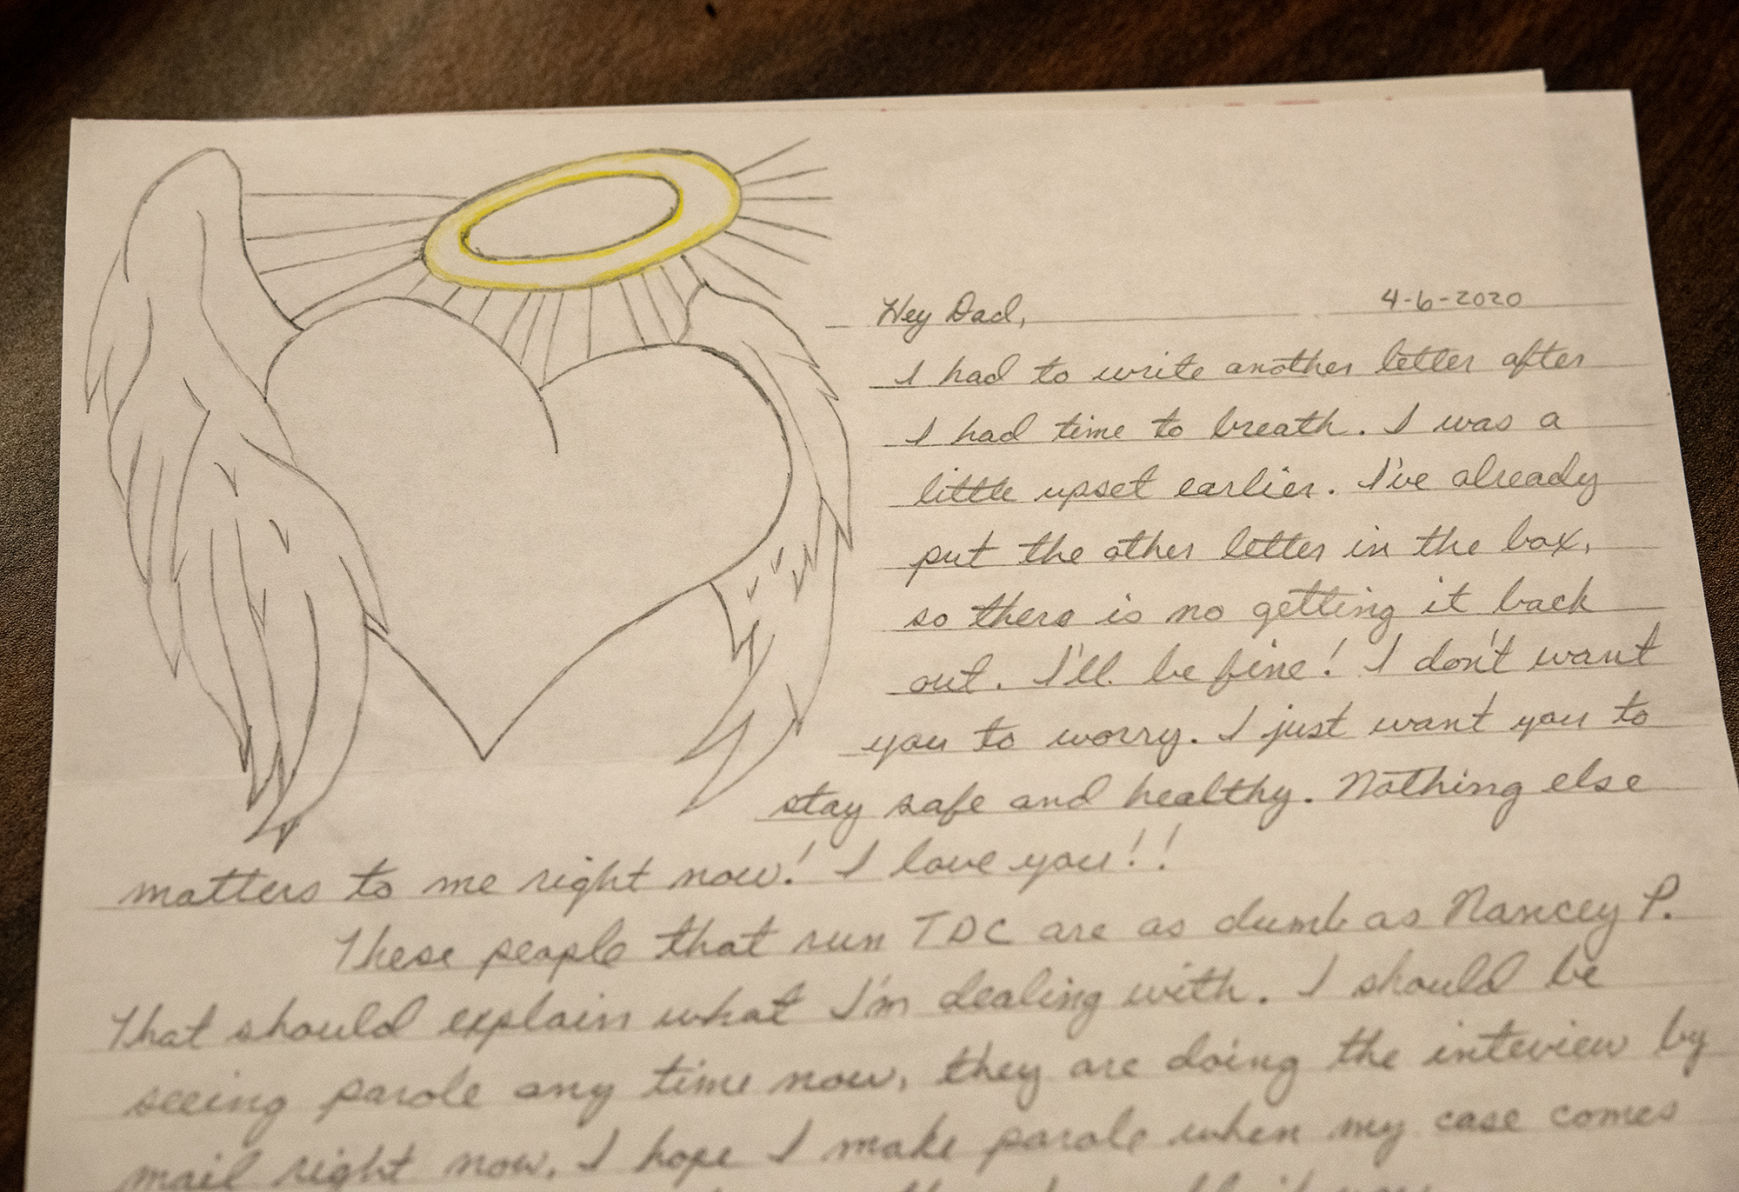 Hey Dad, 4-6-2020
I had to write another letter after
I had time to breath. I was a
little upset earlier. I've already
put the other letter in the box,
so there is no getting it back
out. I'll be fine! I don't want
you to worry. I just want you to
stay safe and healthy. Nothing else
matters to me right now! I love you!!
These people that run TDC are as dumb as Nancey P.
That should explain what I'm dealing with. I should be
seeing parole any time now, they are doing the inteview by
mail right now. I hope I make parole when my case comes